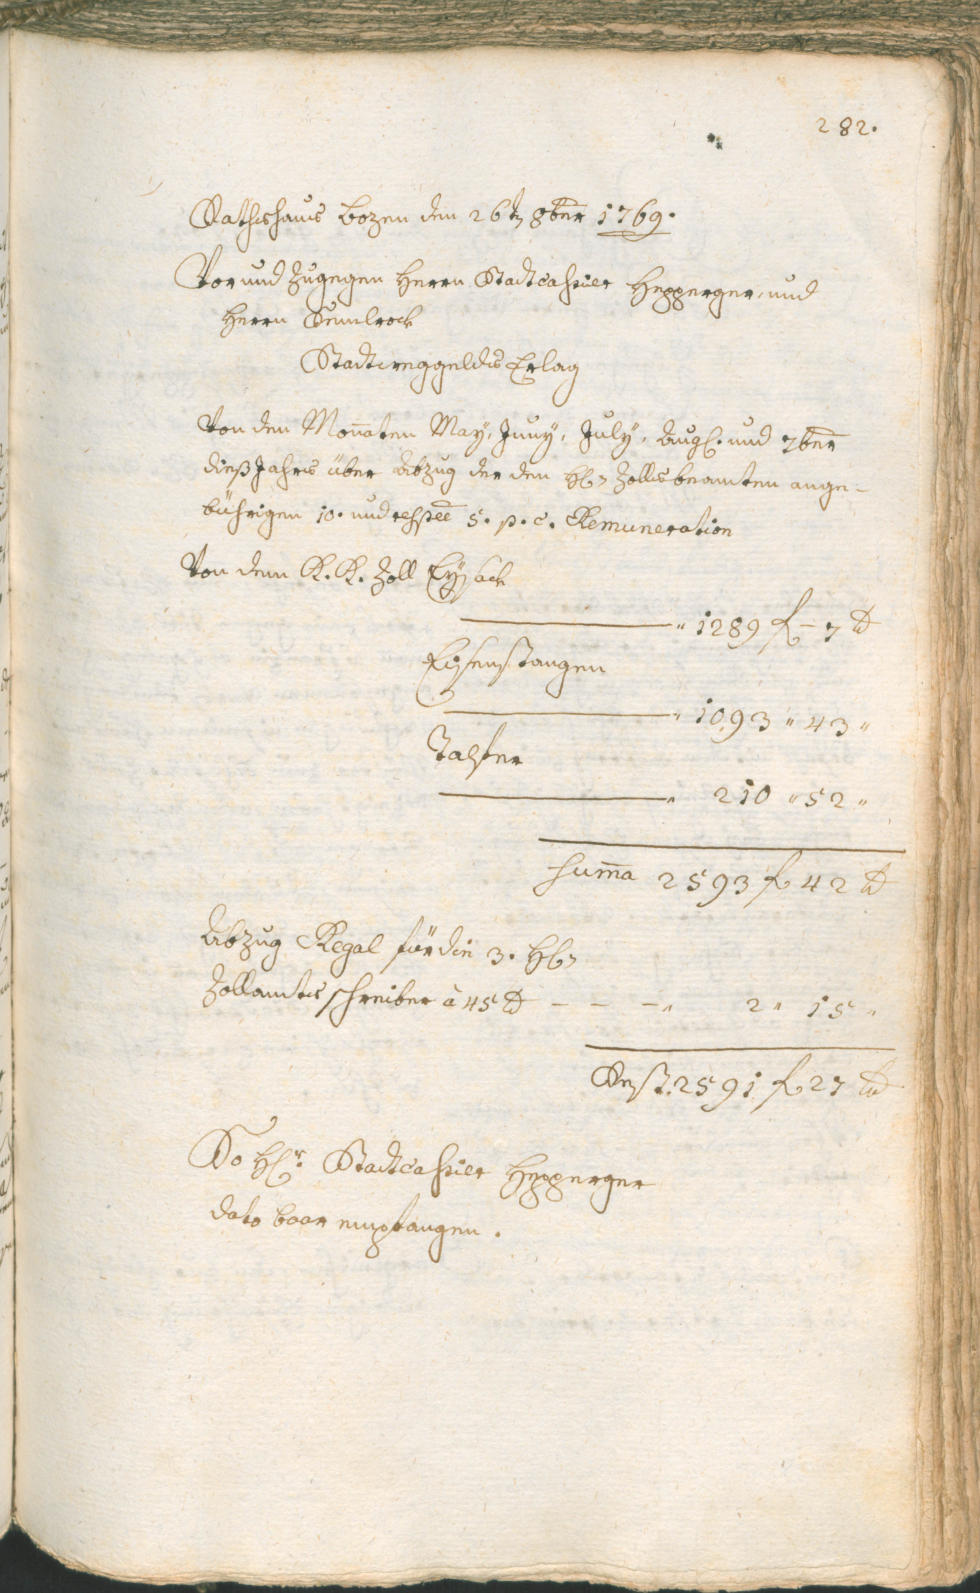 282.
Rathshaus Bozen den 26ten 8ber 1769.
Vor und zugegen Herrn Stadtcassier Hepperger, und
Herrn Remlrock
Stadtweggelds Erlag
Von den Monaten May, Juny, July, Aug. und 7ber
dieß Jahrs über Abzug der den HH Zollsbeamten ange-
bührigen 10. und respee 5. p. c. Remuneration
Von dem K. K. Zoll Eysack
" 1289 f – 7 x
Eisenstangen
" 1093 " 43 "
Talfer
" 210 " 52 "
Summa 2593 f 42 x
Abzug Regal für die 3. HH
Zollamtsschreiber à 45 x – – – " 2 " 15 "
Rest. 2591 f 27 x
So Hr. Stadtcassier Hepperger
dato baar empfangen.